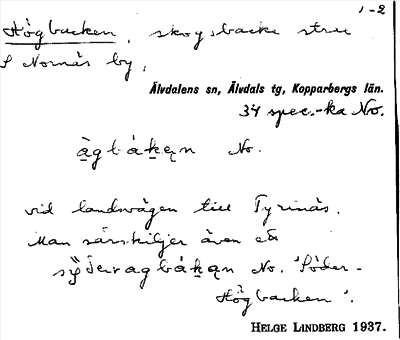 1-2
Högbacken, skogsbacke strax
S Nornäs by,
Älvdalens sn, Älvdals tg, Kopparbergs län.
34 spec.-ka No.
àgbákan No.
vid landsvägen till Tyrinäs.
Man särskiljer även en
No. 'Söder-
Högbacken'.
HELGE LINDBERG 1937.